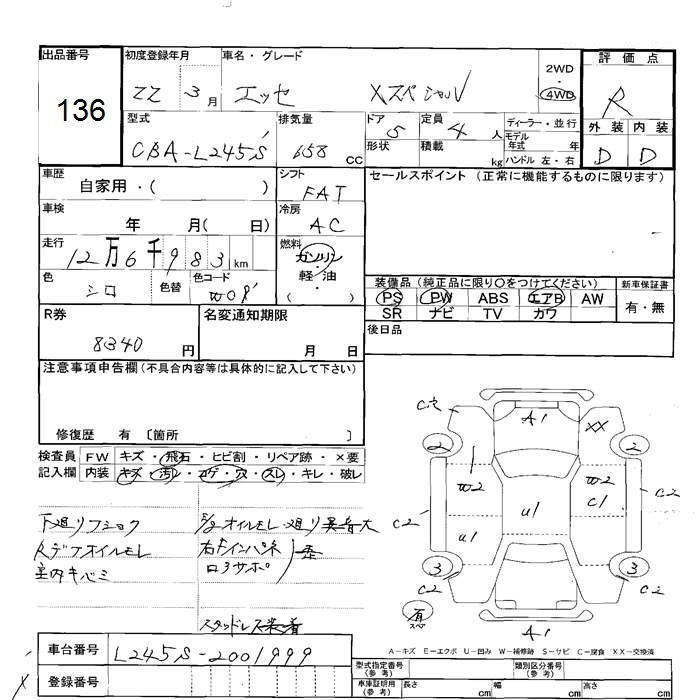 出品番号
136
初度登録年月
22 3月
車名・グレード
エッセ Xスペシャル
2WD
・
4WD
評価点
R
型式
CBA-L245S
排気量
658 cc
ドア
5
定員
4 人
形状
積載
kg
ディーラー・並行
モデル
年式 年
ハンドル 左・右
外装 内装
D D
車歴
自家用・( )
シフト
FAT
車検
年 月( 日)
冷房
AC
走行
12万6千983 km
燃料
ガソリン
・
軽・油
( )
色
シロ
色替
色コード
W09
セールスポイント (正常に機能するものに限ります)
装備品 (純正品に限り〇をつけてください)
PS PW ABS エアB AW
SR ナビ TV カワ
新車保証書
有・無
後日品
R券
8340 円
名変通知期限
月 日
注意事項申告欄 (不具合内容等は具体的に記入して下さい)
修復歴 有 〔箇所 〕
検査員
記入欄
FW キズ・飛石・ヒビ割・リペア跡・×要
内装 キズ・汚レ・コゲ・穴・スレ・キレ・破レ
下廻リフショク
Rデフオイルモレ
室内キバミ
E/gオイルモレ・廻リ異音大
右Fインパネ
ロアサポ
歪
スタッドレス装着
A1
XX
2 2
W2
W2
C1
U1
U1
C2 C2
3 3
C2 C2
有
スペア
A1
A－キズ E－エクボ U－凹み W－補修跡 S－サビ C－腐食 XX－交換済
車台番号
L245S-2001999
登録番号
型式指定番号
(参考)
類別区分番号
(参考)
車庫証明用
(参考)
長さ cm
幅 cm
高さ cm